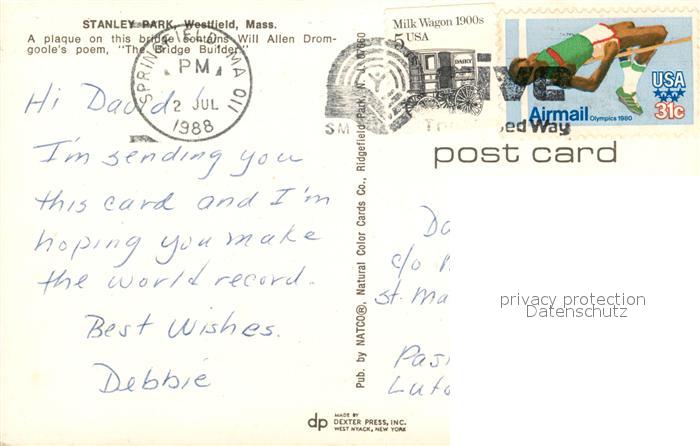 STANLEY PARK, Westfield, Mass.
A plaque on this bridge contains Will Allen Drom-
goole's poem, "The Bridge Builder."
SPRINGFIELD MA 011
PM
2 JUL
1988
Hi David!
I'm sending you
this card and I'm
hoping you make
the world record.
Best Wishes.
Debbie
Pub. by NATCO®, Natural Color Cards Co., Ridgefield Park, N. J. 07660
dp MADE BY
DEXTER PRESS, INC.
WEST NYACK, NEW YORK
Milk Wagon 1900s
5 USA
DAIRY
USA
31c
Airmail Olympics 1980
Way
post card
c/o
St. Ma
Pas
privacy protection
Datenschutz